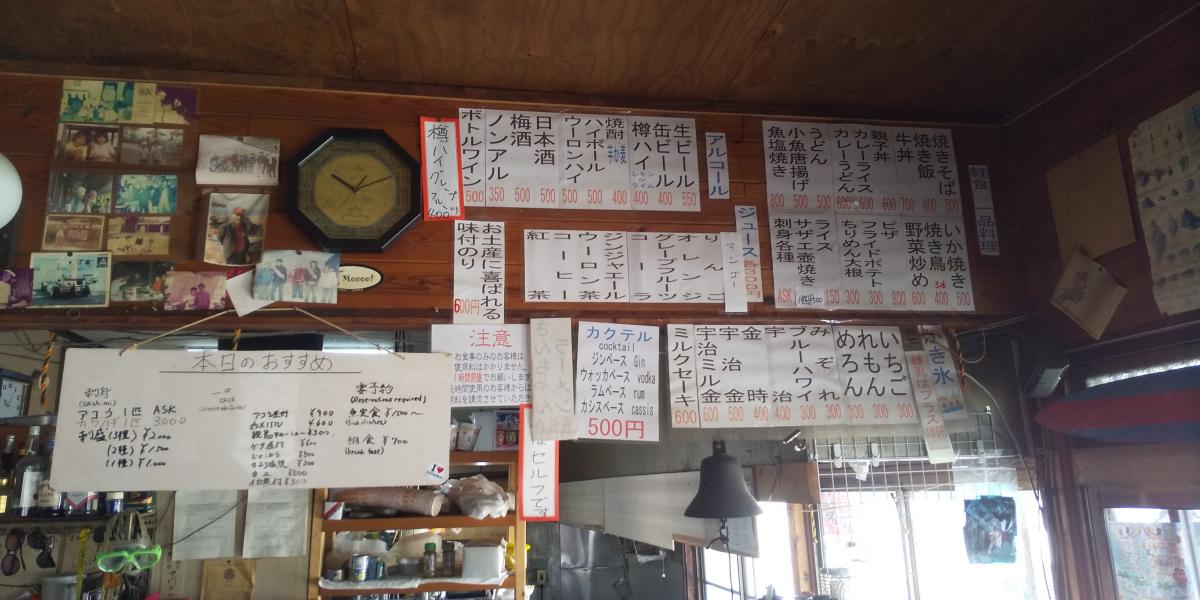 軽食
一品料理
焼きそば 500
焼き飯 600
牛丼 700
親子丼 600
カレーライス 600
カレーうどん 600
うどん 500
小魚唐揚げ 500
魚塩焼き 800
いか焼き 500
焼き鳥 3本 400
野菜炒め 600
ピザ 800
フライドポテト 300
ちりめん大根 300
ライス 150
サザエ壺焼き
刺身各種 ASK
アルコール
生ビール 550
缶ビール 400
樽ハイ 400
焼酎 芋か麦 400
ハイボール 500
ウーロンハイ 500
日本酒 500
梅酒 500
ノンアル 350
ボトルワイン 500
樽ハイ
400
ジュース各300円
マンゴー
りんご
オレンジ
グレープフルーツ
コーラ
ジンジャエール
ウーロン茶
コーヒー
紅茶
お土産に喜ばれる
味付のり
600円
かき氷
いちご 300
れもん 300
めろん 300
みぞれ 300
ブルーハワイ 300
宇治 400
金時 500
宇治金時
宇治ミルク金時 600
ミルクセーキ 600
カクテル
cocktail
ジンベース Gin
ウォッカベース vodka
ラムベース rum
カシスベース cassis
500円
注意
お食事のみのお客様は
使用料はかかりません。
はセルフです
本日のおすすめ
刺身
(sashimi)
アコウ 1匹 ASK
カワハギ 1匹 3000
刺盛(3種) ¥2,000
(2種) ¥1,500
(1種) ¥1,000
一品
¥900
¥600
要予約
(Reservations required)
魚定食 ¥1500〜
朝食 ¥700
(breakfast)
Moooo!